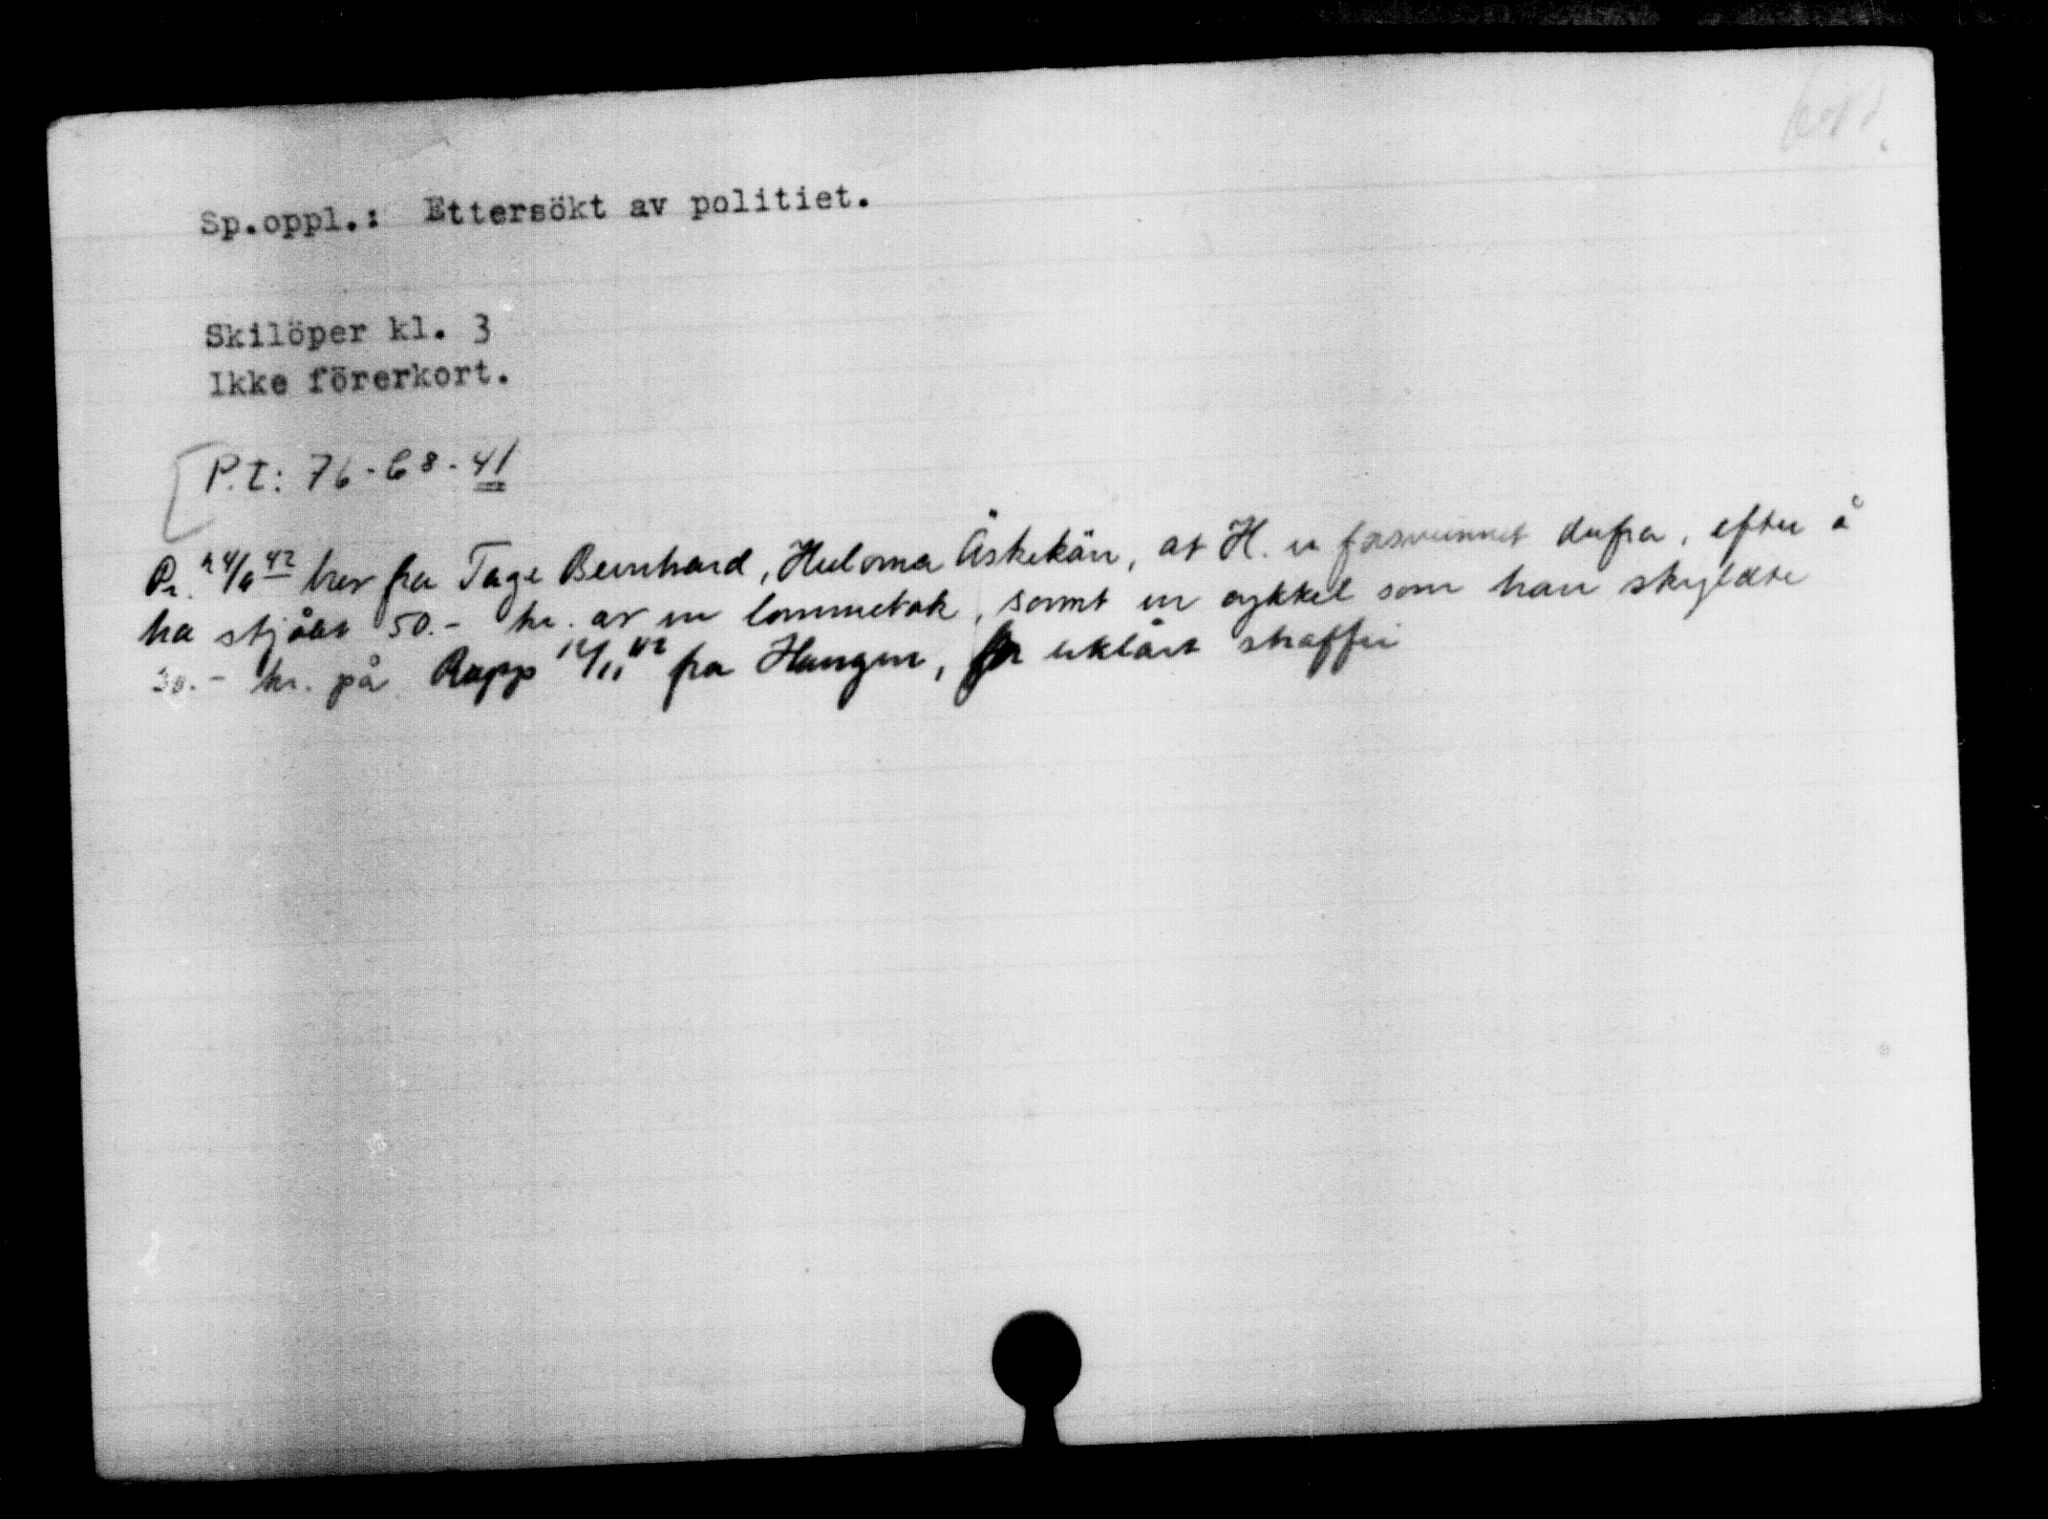 Sp.oppl.: Ettersökt av politiet.
Skilöper kl. 3
Ikke förerkort.
P.t: 76-68-41
Pr. 24/6 42 brev fra Tage Bernhard, Huloma Äskekärr, at H. er forsvunnet derfra, efter å
ha stjålet 50.- kr. av en lommebok, samt en sykkel som han skyldte
30.- kr. på Rapp 12/11 42 fra Haugen, er erklært straffri